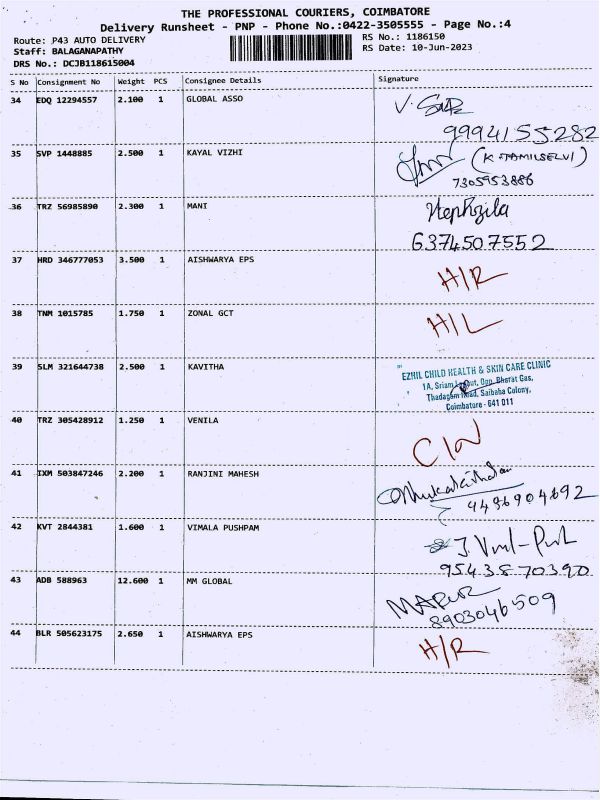 THE PROFESSIONAL COURIERS, COIMBATORE
Delivery Runsheet - PNP - Phone No.:0422-3505555 - Page No.:4
Route: P43 AUTO DELIVERY RS No.: 1186150
Staff: BALAGANAPATHY RS Date: 10-Jun-2023
DRS No.: DCJB118615004
S No Consignment No Weight PCS Consignee Details Signature
34 EDQ 12294557 2.100 1 GLOBAL ASSO
9994155282
35 SVP 1448885 2.500 1 KAYAL VIZHI (K TAMILSELVI)
7305953886
36 TRZ 56985890 2.300 1 MANI Hephzila
6374507552
37 HRD 346777053 3.500 1 AISHWARYA EPS H/R
38 TNM 1015785 1.750 1 ZONAL GCT H/L
39 SLM 321644738 2.500 1 KAVITHA EZHIL CHILD HEALTH & SKIN CARE CLINIC
1A, Sriam Layout, Opp. Bharat Gas,
Thadagam Road, Saibaba Colony,
Coimbatore - 641 011
40 TRZ 305428912 1.250 1 VENILA
41 IXM 503847246 2.200 1 RANJINI MAHESH
9486904692
42 KVT 2844381 1.600 1 VIMALA PUSHPAM
9543870390
43 ADB 588963 12.600 1 MM GLOBAL
8903046509
44 BLR 505623175 2.650 1 AISHWARYA EPS H/R